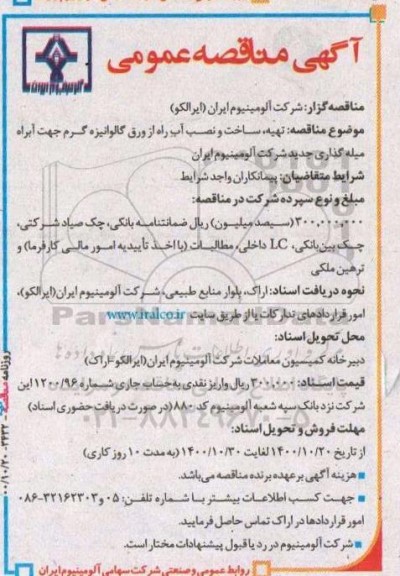 آگهی مناقصه عمومی
آلومینیوم ایران
مناقصه گزار: شرکت آلومینیوم ایران (ایرالکو)
موضوع مناقصه: تهیه، ساخت و نصب آب راه از ورق گالوانیزه گرم جهت آبراه
میله گذاری جدید شرکت آلومینیوم ایران
شرایط متقاضیان: پیمانکاران واجد شرایط
مبلغ و نوع سپرده شرکت در مناقصه:
۳۰۰.۰۰۰.۰۰۰ (سیصد میلیون) ریال ضمانتنامه بانکی، چک صیاد شرکتی،
چک بین بانکی، LC داخلی، مطالبات (با اخذ تأییدیه امور مالی کارفرما) و
ترهین ملکی
نحوه دریافت اسناد: اراک، بلوار منابع طبیعی، شرکت آلومینیوم ایران (ایرالکو)،
امور قراردادهای تدارکات یا از طریق سایت www.iralco.ir
ParsNamadData
محل تحویل اسناد:
دبیرخانه کمیسیون معاملات شرکت آلومینیوم ایران (ایرالکو-اراک)
قیمت اسناد: ۳۰۰.۰۰۰ ریال واریز نقدی به حساب جاری شماره ۱۲۰۰/۹۶ این
شرکت نزد بانک سپه شعبه آلومینیوم کد ۸۸۰ (در صورت دریافت حضوری اسناد)
۰۲۱-۸۸۳۴۹۶۷۰-۵
مهلت فروش و تحویل اسناد:
از تاریخ ۱۴۰۰/۱۰/۲۰ لغایت ۱۴۰۰/۱۰/۳۰ (به مدت ۱۰ روز کاری)
هزینه آگهی بر عهده برنده مناقصه می‌باشد.
جهت کسب اطلاعات بیشتر با شماره تلفن: ۰۵ و ۳۲۱۶۲۳۰۳-۰۸۶
امور قراردادها در اراک تماس حاصل فرمایید.
شرکت آلومینیوم در رد یا قبول پیشنهادات مختار است.
روابط عمومی و صنعتی شرکت سهامی آلومینیوم ایران
روزنامه
۰۰/۱۰/۲۰